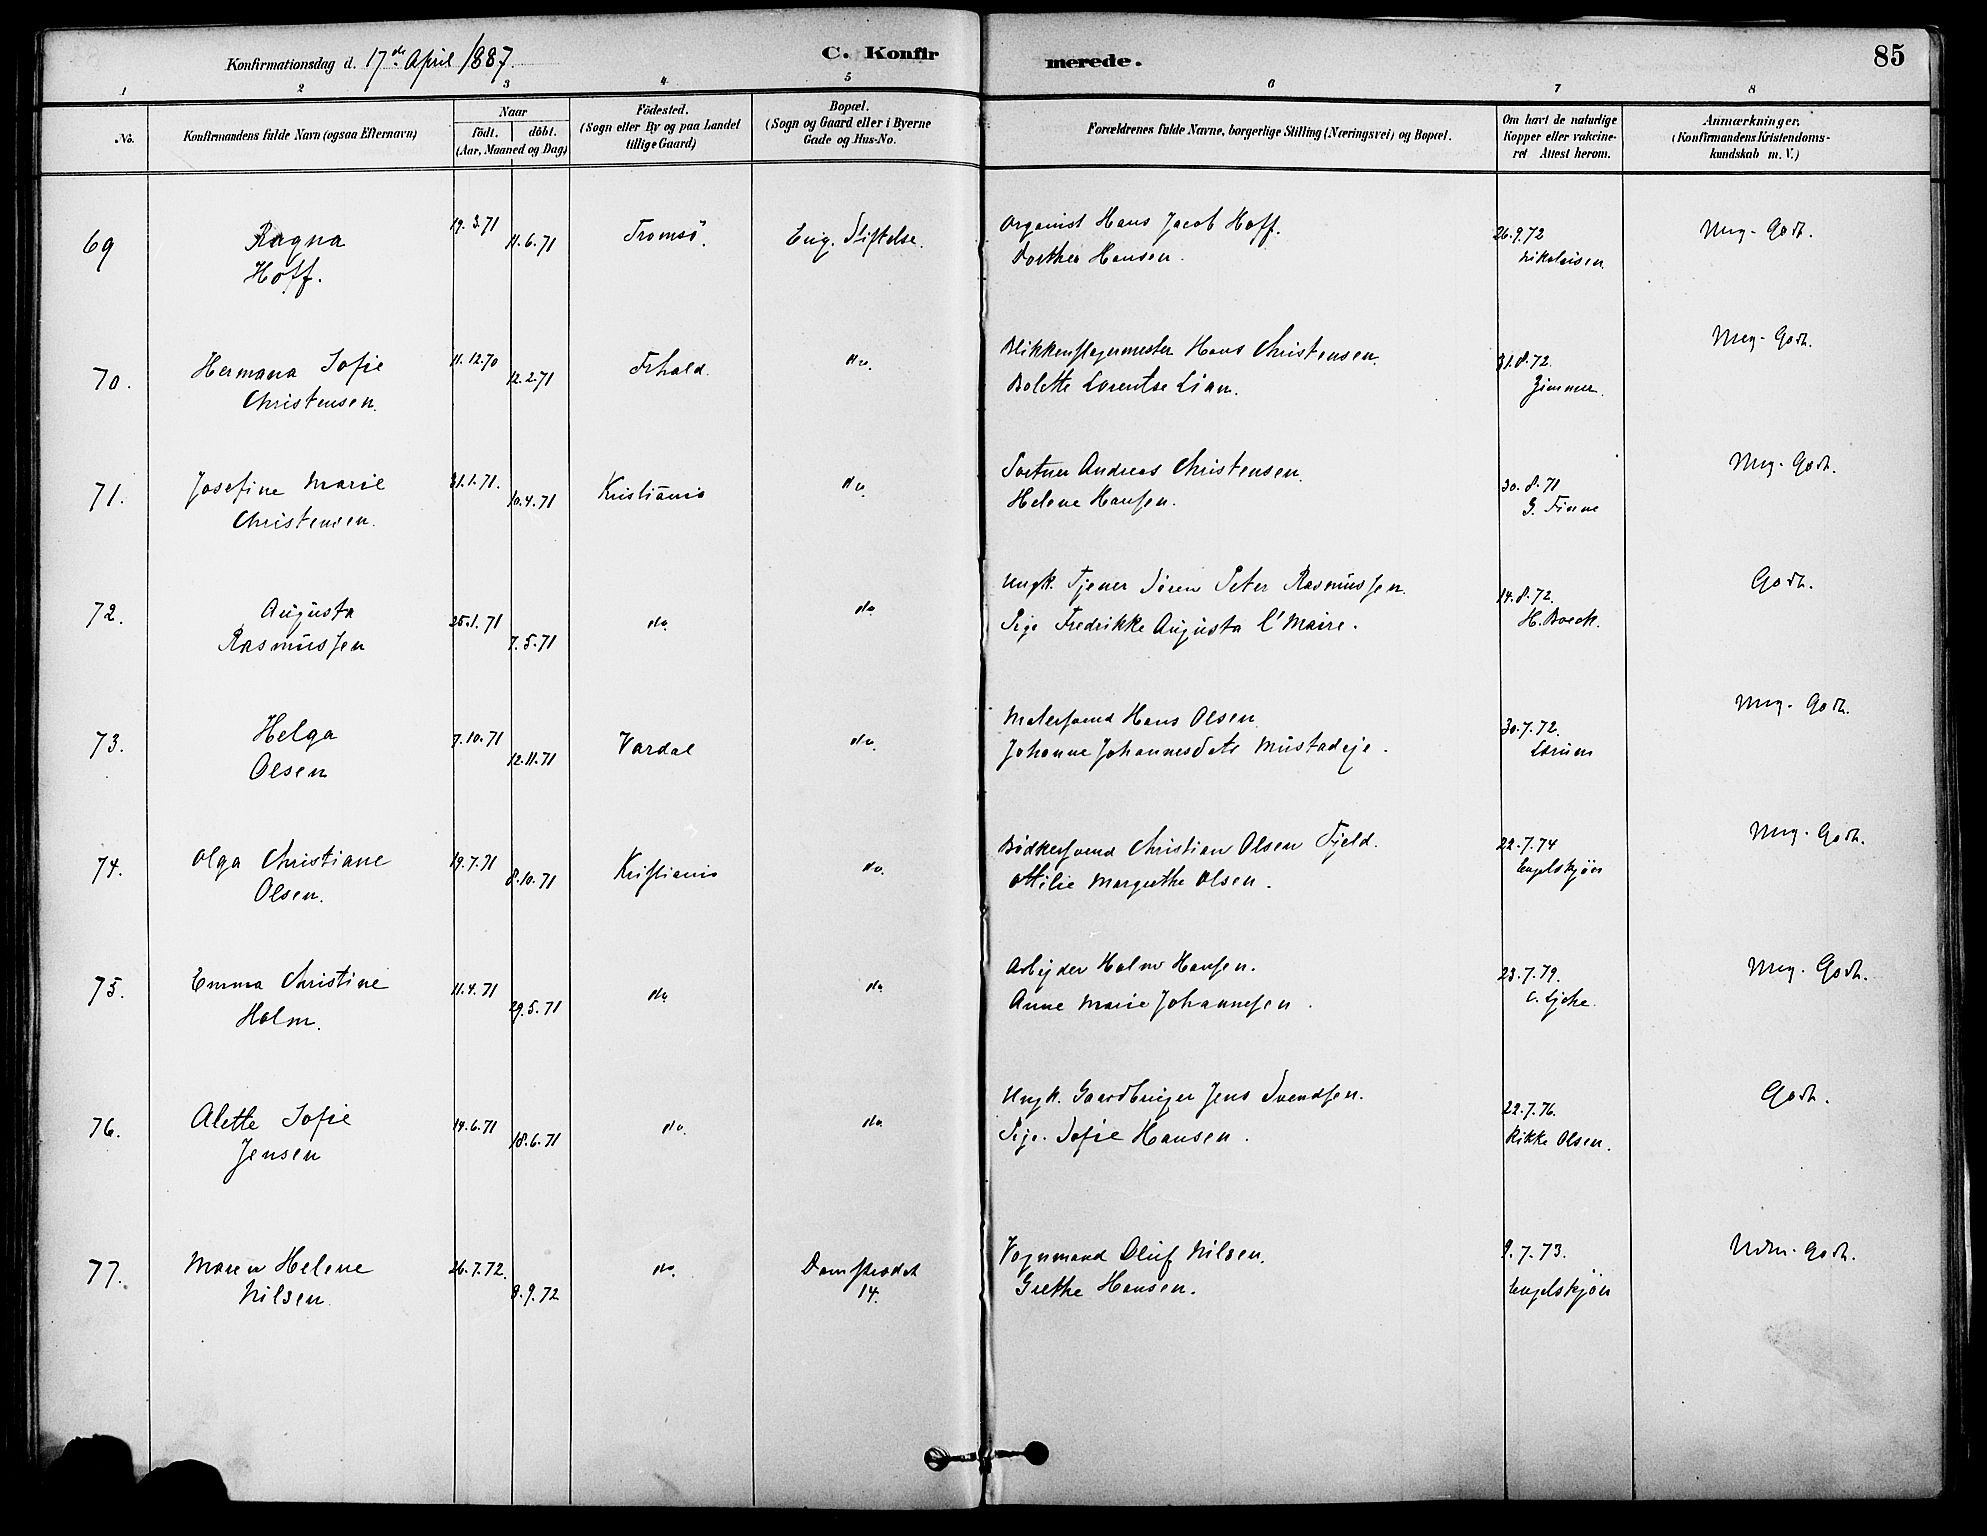 Konfirmationsdag d. 17de April 1887. C. Konfirmerede. 85
1 2 3 4 5 6 7 8
No.
Konfirmandens fulde Navn (ogsaa Efternavn)
Naar
födt. döbt.
(Aar, Maaned og Dag)
Födested.
(Sogn eller By og paa Landet
tillige Gaard)
Bopæl.
(Sogn og Gaard eller i Byerne
Gade og Hus-No.
Forældrenes fulde Navne, borgerlige Stilling (Næringsvei) og Bopæl.
Om havt de naturlige
Kopper eller vakcine-
ret Attest herom.
Anmærkninger.
(Konfirmandens Kristendoms-
kundskab m. V.)
69 Ragna 19.3.71 11.6.71 Tromsö. Eug. Stiftelse. Organist Hans Jacob Hoff. 26.9.72 Meg. Godt.
Hoff. Dorthea Hansen. Nikolaisen.
70. Hermana Sofie 11.12.70 12.2.71 Frhald. do. Blikkenslagermester Hans Christensen. 31.8.72. Meg. Godt.
Christensen. Bolette Lorentse Lian. Zimmer.
71. Josefine Marie 31.1.71. 10.4.71 Kristiania do. Portner Andreas Christensen. 30.8.71 Meg. Godt.
Christensen. Helene Hansen. G. Finne
72. Augusta 25.1.71 7.5.71 do. do Ungk. Tjener Sören Peter Rasmussen. 14.8.72. Godt.
Rasmussen Pige Fredrikke Augusta l'Maire. H. Boeck.
73. Helga 7.10.71 12.11.71 Vardal do. Malersvend Hans Olsen. 30.7.72. Meg. Godt.
Olsen Johanne Johannesdatr Mustadeje. Lorum
74. Olga Christiane 19.7.71 8.10.71 Kristiania do. Bödkersvend Christian Olsen Fjeld. 22.7.74 Meg. Godt.
Olsen. Otilie Margrethe Olsen. Engelskjön
75. Emma Christine 11.4.71 29.5.71 do do. Arbejder Halvor Hansen. 23.7.79. Meg. Godt.
Holm. Anne Marie Johannesen.
76. Alette Sofie 14.6.71 18.6.71 do. do. Ungk. Gaardbruger Jens Svendsen. 22.7.76. Godt.
Jensen Pige. Sofie Hansen. Rikke Olsen.
77. Maren Helene 26.7.72. 8.9.72 do. Damstrædet Vognmand Oluf Nilsen. 9.7.73. Udm. Godt.
Nilsen. 14. Grethe Hansen. Engelskjön